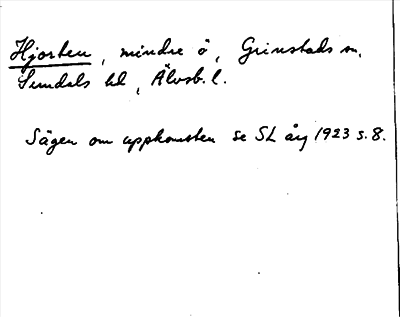 Hjorten, mindre ö, Grinstads sn,
Sundals hd, Älvsb. l.
Sägen om uppkomsten se SL årg 1923 s. 8.